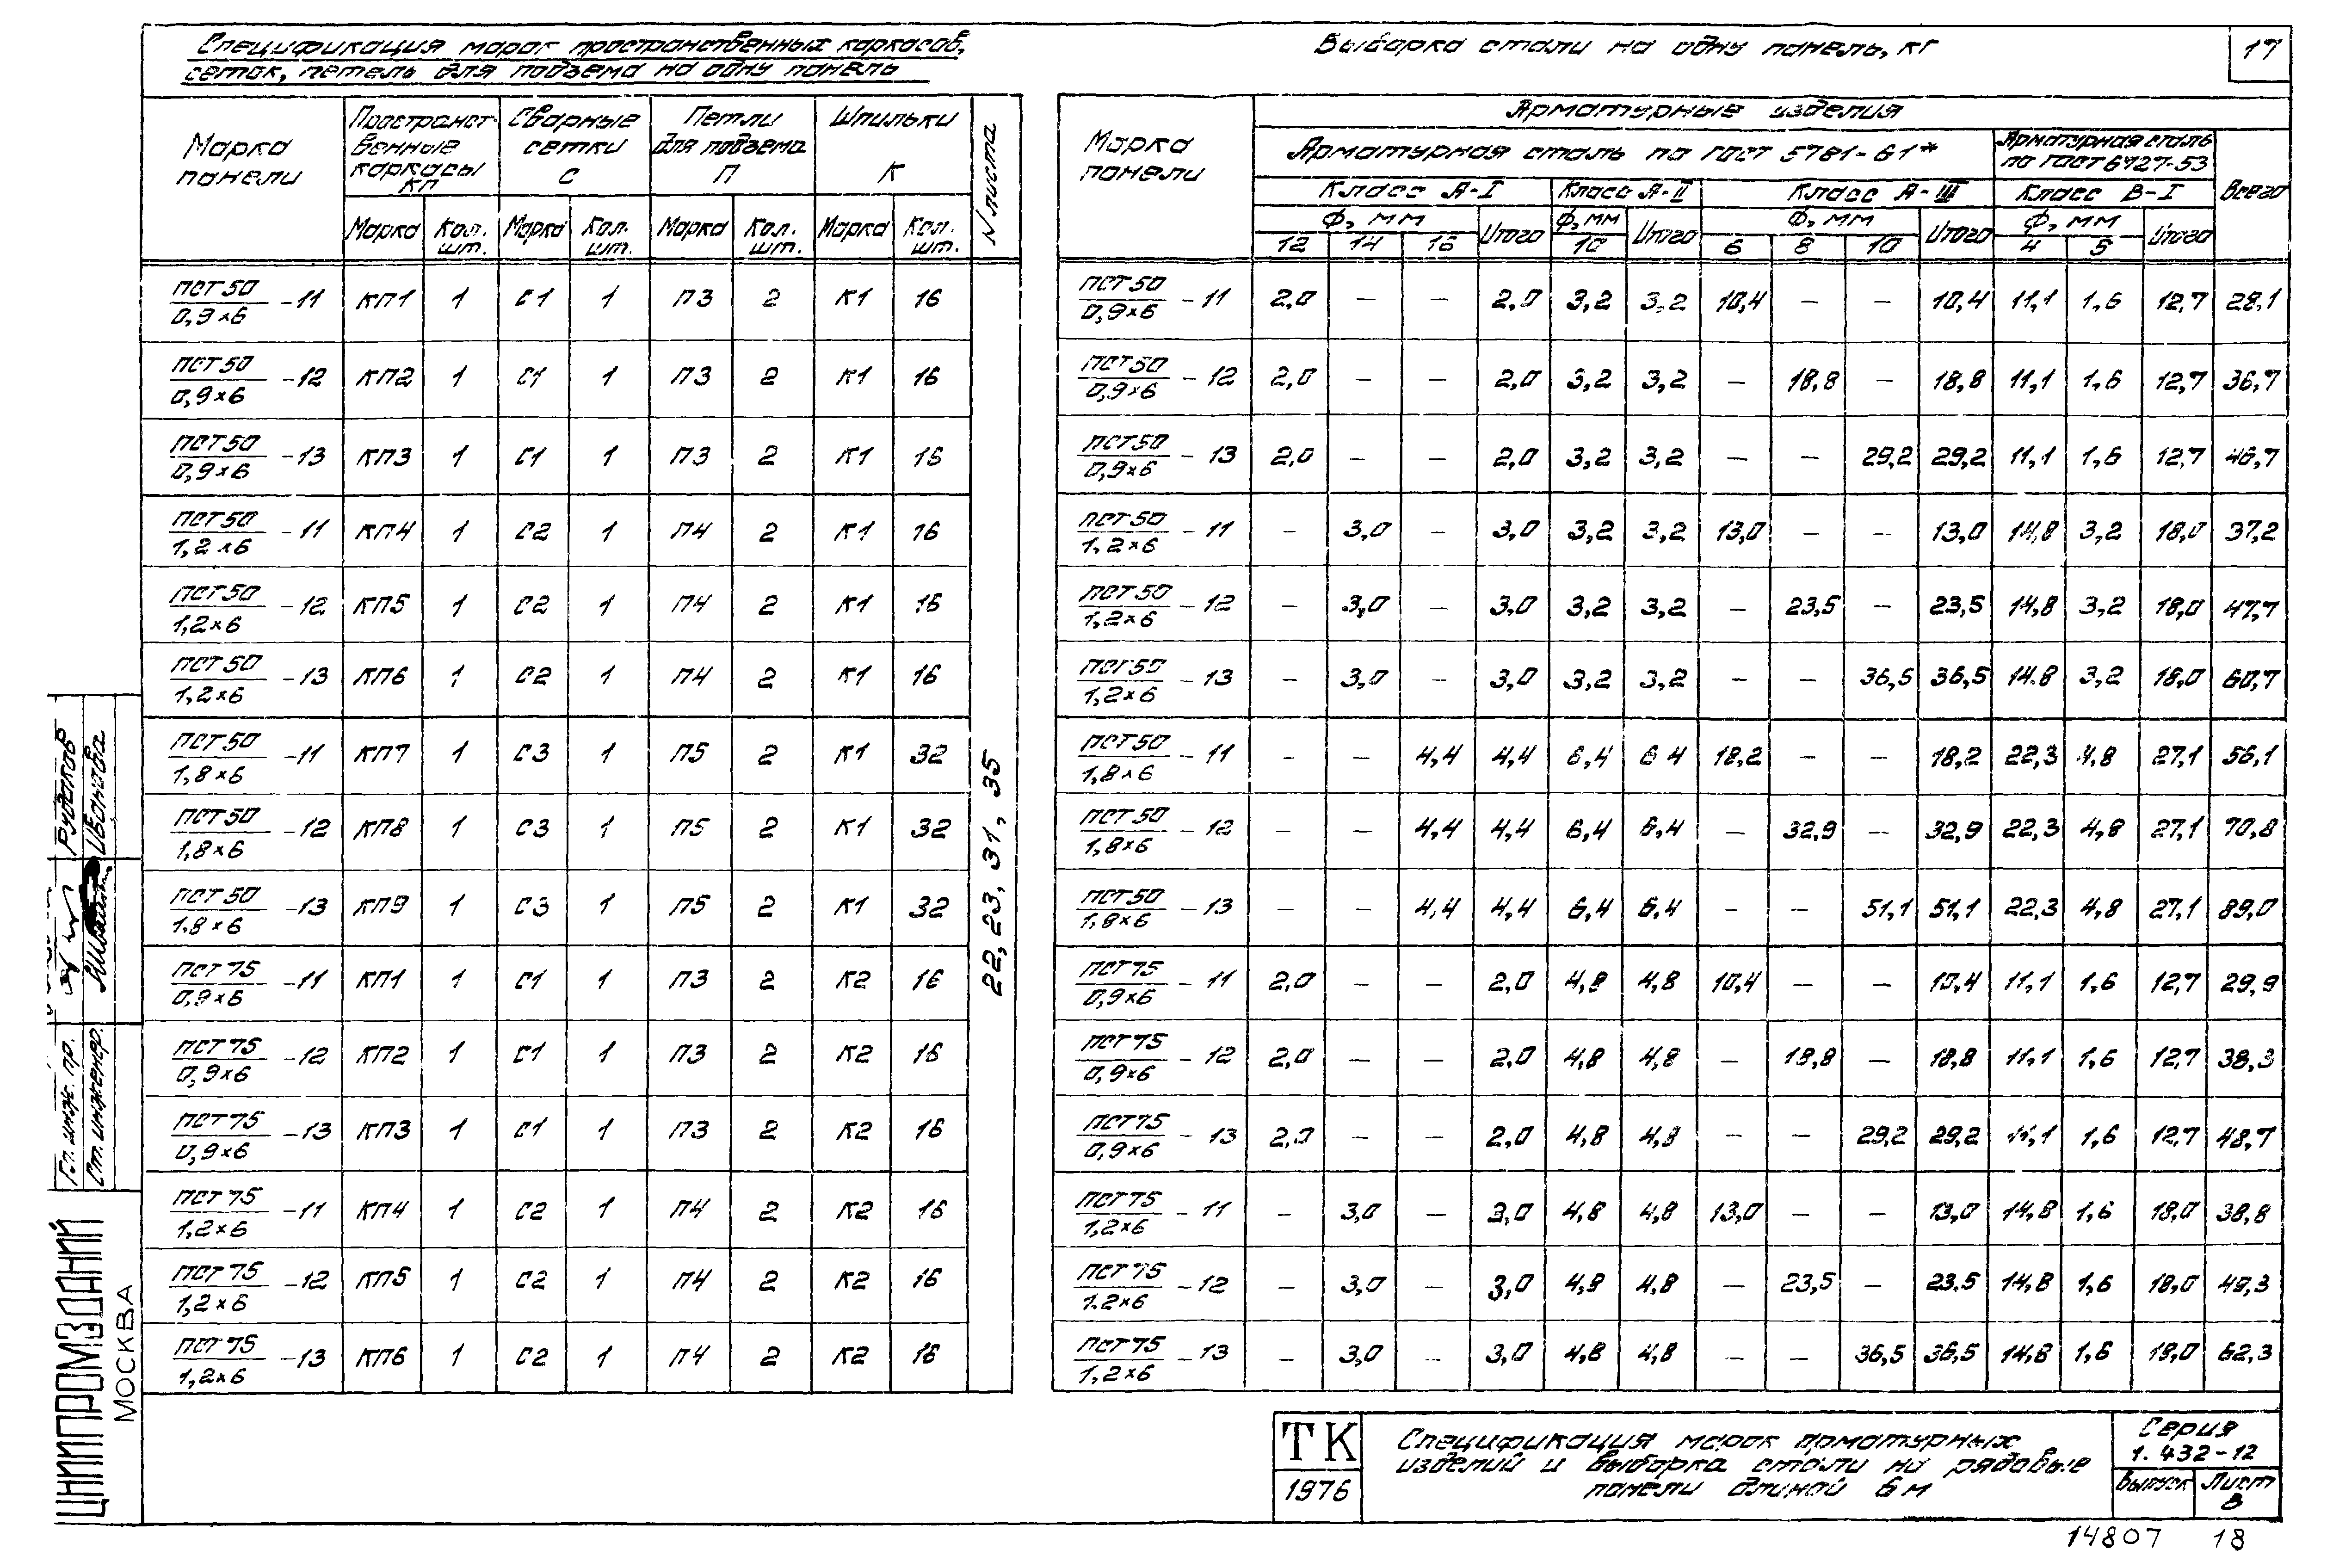 Спецификация марок пространственных каркасов,
сеток, петель для подъема на одну панель
Выборка стали на одну панель, кг
17
Марка панели | Пространственные каркасы КП | Сварные сетки С | Петли для подъема П | Шпильки К | № листа
Марка | Кол. шт. | Марка | Кол. шт. | Марка | Кол. шт. | Марка | Кол. шт.
ПСТ50/0,9×6 -11 | КП1 | 1 | С1 | 1 | П3 | 2 | К1 | 16
ПСТ50/0,9×6 -12 | КП2 | 1 | С1 | 1 | П3 | 2 | К1 | 16
ПСТ50/0,9×6 -13 | КП3 | 1 | С1 | 1 | П3 | 2 | К1 | 16
ПСТ50/1,2×6 -11 | КП4 | 1 | С2 | 1 | П4 | 2 | К1 | 16
ПСТ50/1,2×6 -12 | КП5 | 1 | С2 | 1 | П4 | 2 | К1 | 16
ПСТ50/1,2×6 -13 | КП6 | 1 | С2 | 1 | П4 | 2 | К1 | 16
ПСТ50/1,8×6 -11 | КП7 | 1 | С3 | 1 | П5 | 2 | К1 | 32
ПСТ50/1,8×6 -12 | КП8 | 1 | С3 | 1 | П5 | 2 | К1 | 32
ПСТ50/1,8×6 -13 | КП9 | 1 | С3 | 1 | П5 | 2 | К1 | 32
ПСТ75/0,9×6 -11 | КП1 | 1 | С1 | 1 | П3 | 2 | К2 | 16
ПСТ75/0,9×6 -12 | КП2 | 1 | С1 | 1 | П3 | 2 | К2 | 16
ПСТ75/0,9×6 -13 | КП3 | 1 | С1 | 1 | П3 | 2 | К2 | 16
ПСТ75/1,2×6 -11 | КП4 | 1 | С2 | 1 | П4 | 2 | К2 | 16
ПСТ75/1,2×6 -12 | КП5 | 1 | С2 | 1 | П4 | 2 | К2 | 16
ПСТ75/1,2×6 -13 | КП6 | 1 | С2 | 1 | П4 | 2 | К2 | 16
22, 23, 31, 35
Марка панели | Арматурные изделия
Арматурная сталь по ГОСТ 5781-61* | Арматурная сталь по ГОСТ 6727-53 | Всего
Класс А-I | Класс А-II | Класс А-III | Класс В-I
Ф, мм | Итого | Ф, мм | Итого | Ф, мм | Итого | Ф, мм | Итого
12 | 14 | 16 | 10 | 6 | 8 | 10 | 4 | 5
ПСТ50/0,9×6 -11 | 2,0 | — | — | 2,0 | 3,2 | 3,2 | 10,4 | — | — | 10,4 | 11,1 | 1,6 | 12,7 | 28,1
ПСТ50/0,9×6 -12 | 2,0 | — | — | 2,0 | 3,2 | 3,2 | — | 18,8 | — | 18,8 | 11,1 | 1,6 | 12,7 | 36,7
ПСТ50/0,9×6 -13 | 2,0 | — | — | 2,0 | 3,2 | 3,2 | — | — | 29,2 | 29,2 | 11,1 | 1,6 | 12,7 | 46,7
ПСТ50/1,2×6 -11 | — | 3,0 | — | 3,0 | 3,2 | 3,2 | 13,0 | — | — | 13,0 | 14,8 | 3,2 | 18,0 | 37,2
ПСТ50/1,2×6 -12 | — | 3,0 | — | 3,0 | 3,2 | 3,2 | — | 23,5 | — | 23,5 | 14,8 | 3,2 | 18,0 | 47,7
ПСТ50/1,2×6 -13 | — | 3,0 | — | 3,0 | 3,2 | 3,2 | — | — | 36,5 | 36,5 | 14,8 | 3,2 | 18,0 | 60,7
ПСТ50/1,8×6 -11 | — | — | 4,4 | 4,4 | 6,4 | 6,4 | 18,2 | — | — | 18,2 | 22,3 | 4,8 | 27,1 | 56,1
ПСТ50/1,8×6 -12 | — | — | 4,4 | 4,4 | 6,4 | 6,4 | — | 32,9 | — | 32,9 | 22,3 | 4,8 | 27,1 | 70,8
ПСТ50/1,8×6 -13 | — | — | 4,4 | 4,4 | 6,4 | 6,4 | — | — | 51,1 | 51,1 | 22,3 | 4,8 | 27,1 | 89,0
ПСТ75/0,9×6 -11 | 2,0 | — | — | 2,0 | 4,8 | 4,8 | 10,4 | — | — | 10,4 | 11,1 | 1,6 | 12,7 | 29,9
ПСТ75/0,9×6 -12 | 2,0 | — | — | 2,0 | 4,8 | 4,8 | — | 18,8 | — | 18,8 | 11,1 | 1,6 | 12,7 | 38,3
ПСТ75/0,9×6 -13 | 2,0 | — | — | 2,0 | 4,8 | 4,8 | — | — | 29,2 | 29,2 | 11,1 | 1,6 | 12,7 | 48,7
ПСТ75/1,2×6 -11 | — | 3,0 | — | 3,0 | 4,8 | 4,8 | 13,0 | — | — | 13,0 | 14,8 | 1,6 | 18,0 | 38,8
ПСТ75/1,2×6 -12 | — | 3,0 | — | 3,0 | 4,8 | 4,8 | — | 23,5 | — | 23,5 | 14,8 | 1,6 | 18,0 | 49,3
ПСТ75/1,2×6 -13 | — | 3,0 | — | 3,0 | 4,8 | 4,8 | — | — | 36,5 | 36,5 | 14,8 | 1,6 | 18,0 | 62,3
Гл. инж. пр. Рудаков
Ст. инженер. Иванова
ЦНИИПРОМЗДАНИЙ
МОСКВА
ТК
1976
Спецификация марок арматурных
изделий и выборка стали на рядовые
панели длиной 6 м
Серия
1.432-12
Выпуск
Лист
8
14807 18